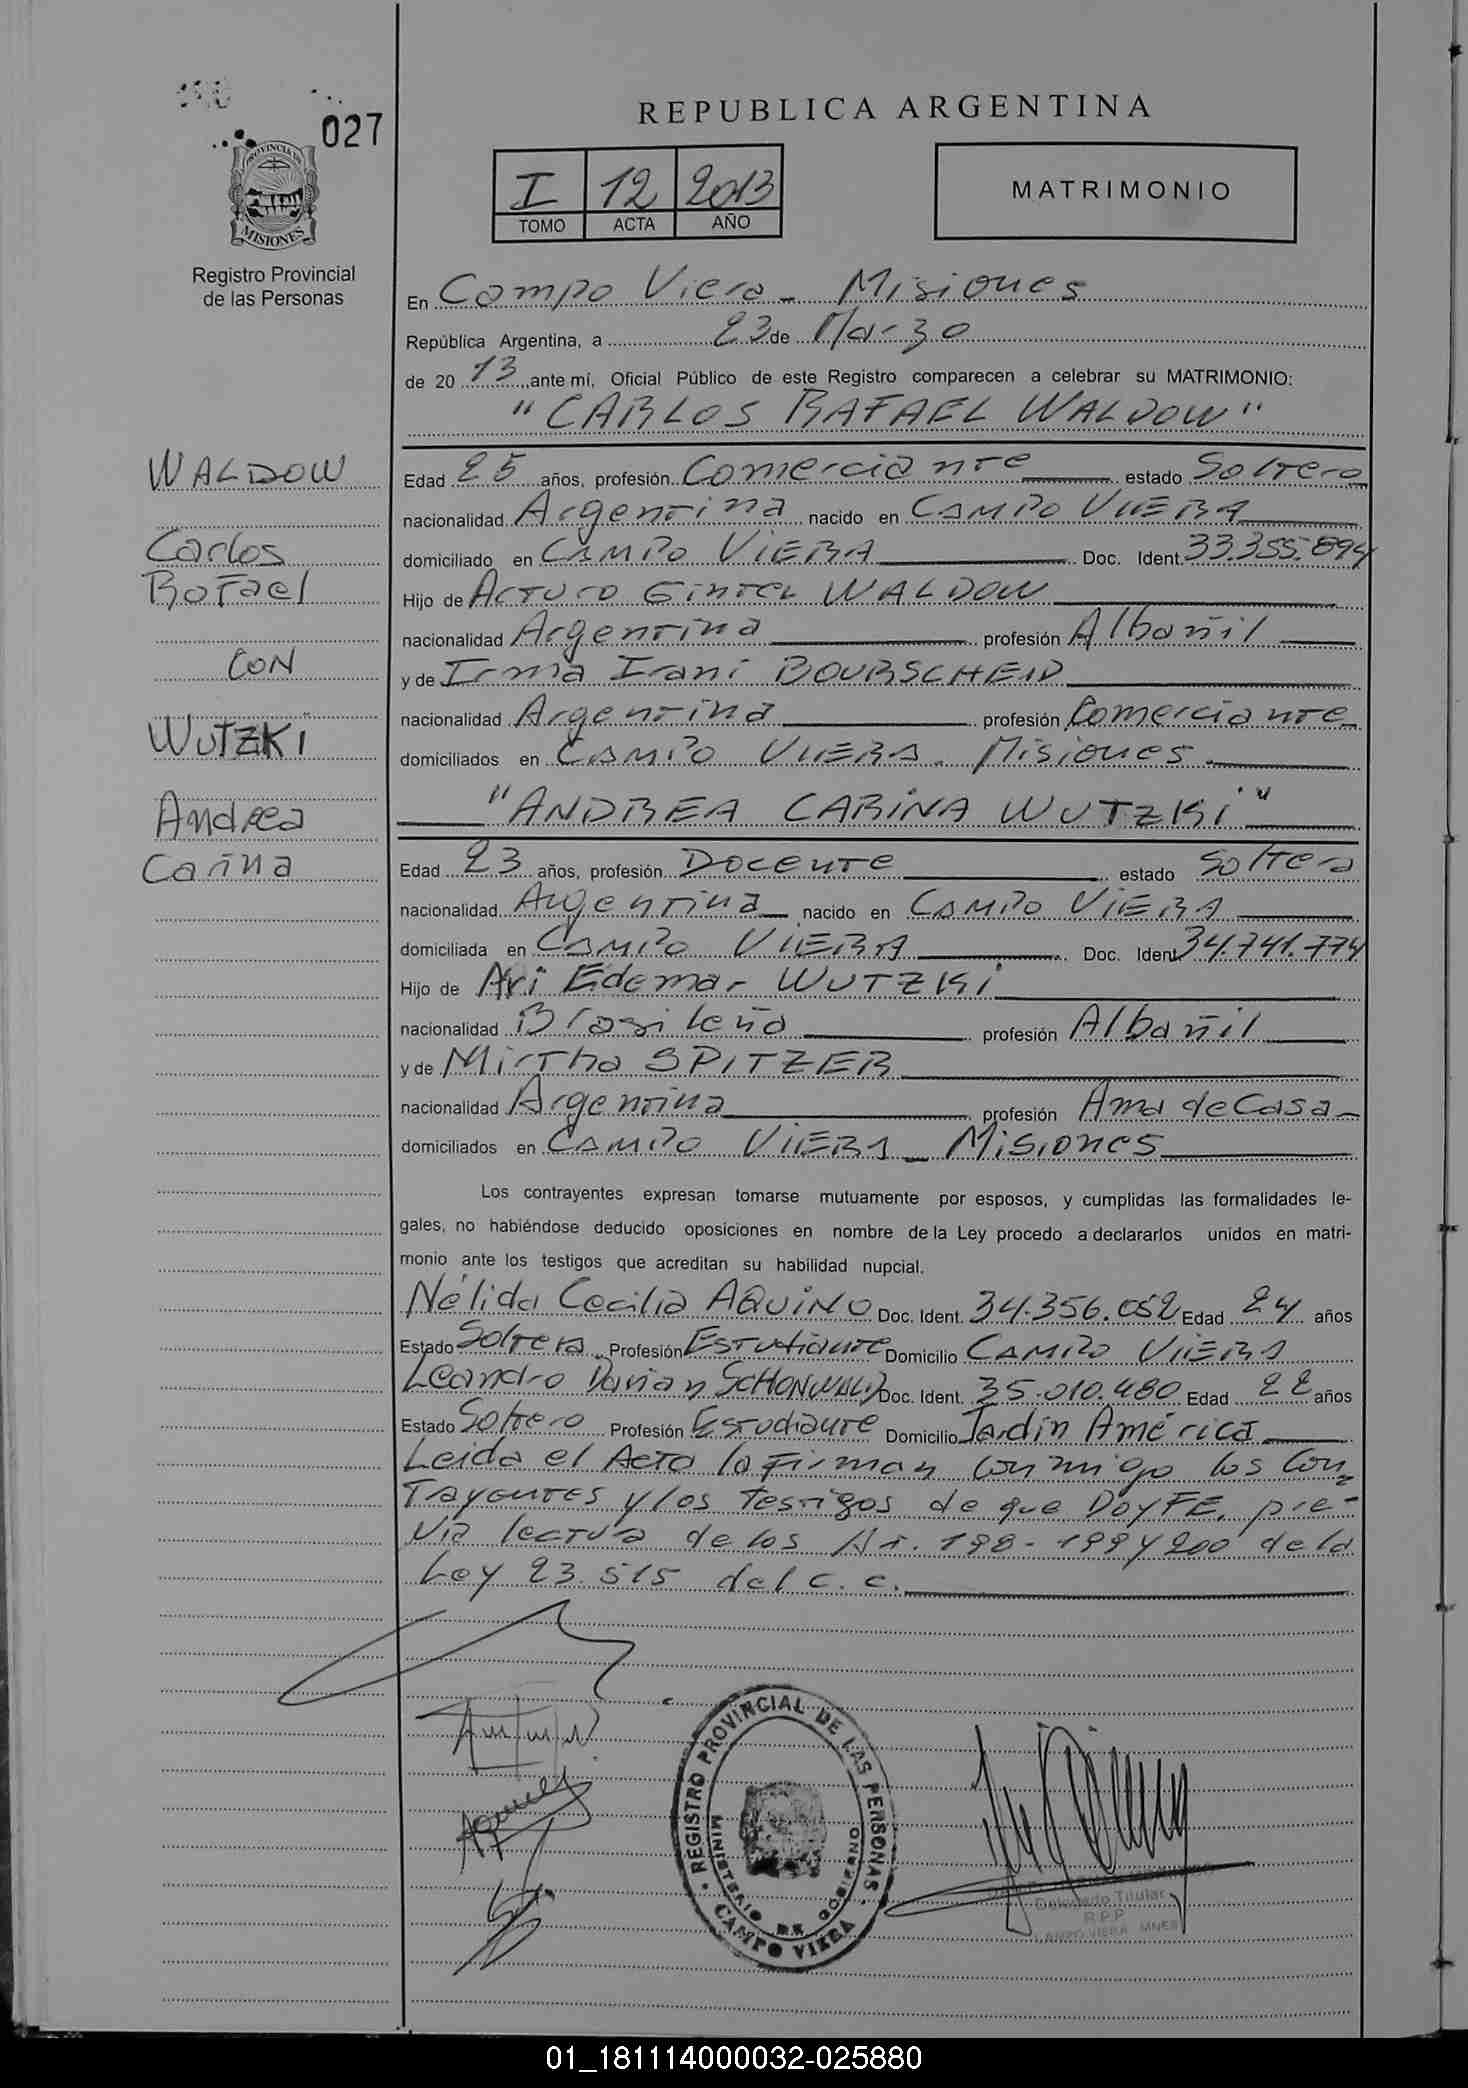 027
REPUBLICA ARGENTINA
I 12 2013
TOMO ACTA AÑO
MATRIMONIO
PROVINCIA DE MISIONES
Registro Provincial
de las Personas
En Campo Viera - Misiones
República Argentina, a 23 de Marzo
de 20 13 ante mí, Oficial Público de este Registro comparecen a celebrar su MATRIMONIO:
"CARLOS RAFAEL WALDOW"
WALDOW
Carlos
Rafael
CON
WUTZKI
Andrea
Carina
Edad 25 años, profesión Comerciante estado Soltero
nacionalidad Argentina nacido en CAMPO VIERA
domiciliado en CAMPO VIERA Doc. Ident. 33.355.894
Hijo de Arturo Gintel WALDOW
nacionalidad Argentina profesión Albañil
y de Irma Irani BOURSCHEID
nacionalidad Argentina profesión Comerciante
domiciliados en CAMPO VIERA - Misiones
"ANDREA CARINA WUTZKI"
Edad 23 años, profesión Docente estado Soltera
nacionalidad Argentina nacido en CAMPO VIERA
domiciliada en CAMPO VIERA Doc. Ident 34.741.774
Hijo de Ari Edemar WUTZKI
nacionalidad Brasileña profesión Albañil
y de Mirtha SPITZER
nacionalidad Argentina profesión Ama de Casa
domiciliados en CAMPO VIERA - Misiones
Los contrayentes expresan tomarse mutuamente por esposos, y cumplidas las formalidades le-
gales, no habiéndose deducido oposiciones en nombre de la Ley procedo a declararlos unidos en matri-
monio ante los testigos que acreditan su habilidad nupcial.
Nélida Cecilia AQUINO Doc. Ident. 34.356.052 Edad 24 años
Estado Soltera Profesión Estudiante Domicilio CAMPO VIERA
Leandro Darian SCHONWALD Doc. Ident. 35.010.480 Edad 22 años
Estado Soltero Profesión Estudiante Domicilio Jardin América
Leida el Acta la Firman conmigo los Con=
Trayentes y los Testigos de que DOY FE, pre-
via lectura de los Ar. 198-199 y 200 de la
Ley 23.515 del C.C.
REGISTRO PROVINCIAL DE LAS PERSONAS
MINISTERIO DE GOBIERNO
CAMPO VIERA
Delegado Titular
R.P.P
CAMPO VIERA MNES
01_181114000032-025880